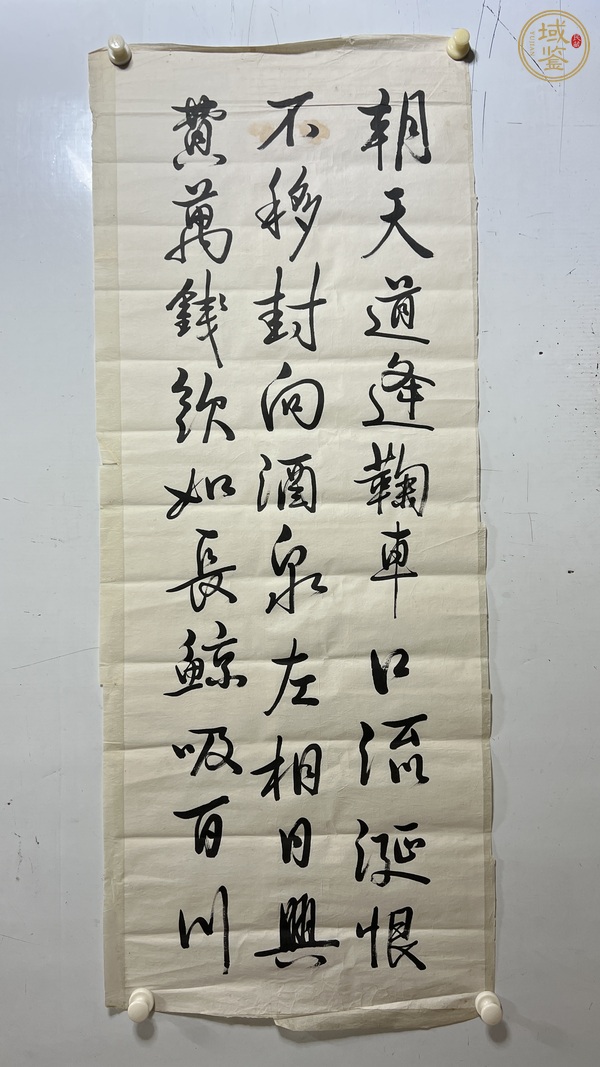 朝天道逢麴車口流涎恨
不移封向酒泉左相日興
費萬錢飲如長鯨吸百川
域鉴